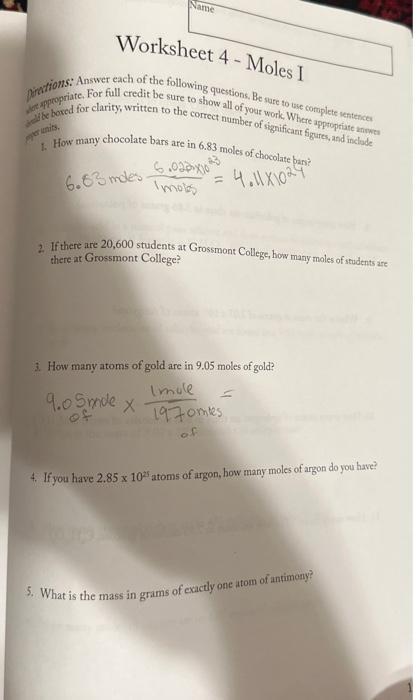 Name
Worksheet 4 - Moles I
Directions: Answer each of the following questions. Be sure to use complete sentences
where appropriate. For full credit be sure to show all of your work. Where appropriate answers
should be boxed for clarity, written to the correct number of significant figures, and include
proper units.
1. How many chocolate bars are in 6.83 moles of chocolate bars?
6.83 moles 6.022x10²³ / 1 moles = 4.11x10²⁴
2. If there are 20,600 students at Grossmont College, how many moles of students are
there at Grossmont College?
3. How many atoms of gold are in 9.05 moles of gold?
9.05 mole of x 1 mole / 197 of =
4. If you have 2.85 x 10²⁵ atoms of argon, how many moles of argon do you have?
5. What is the mass in grams of exactly one atom of antimony?
1